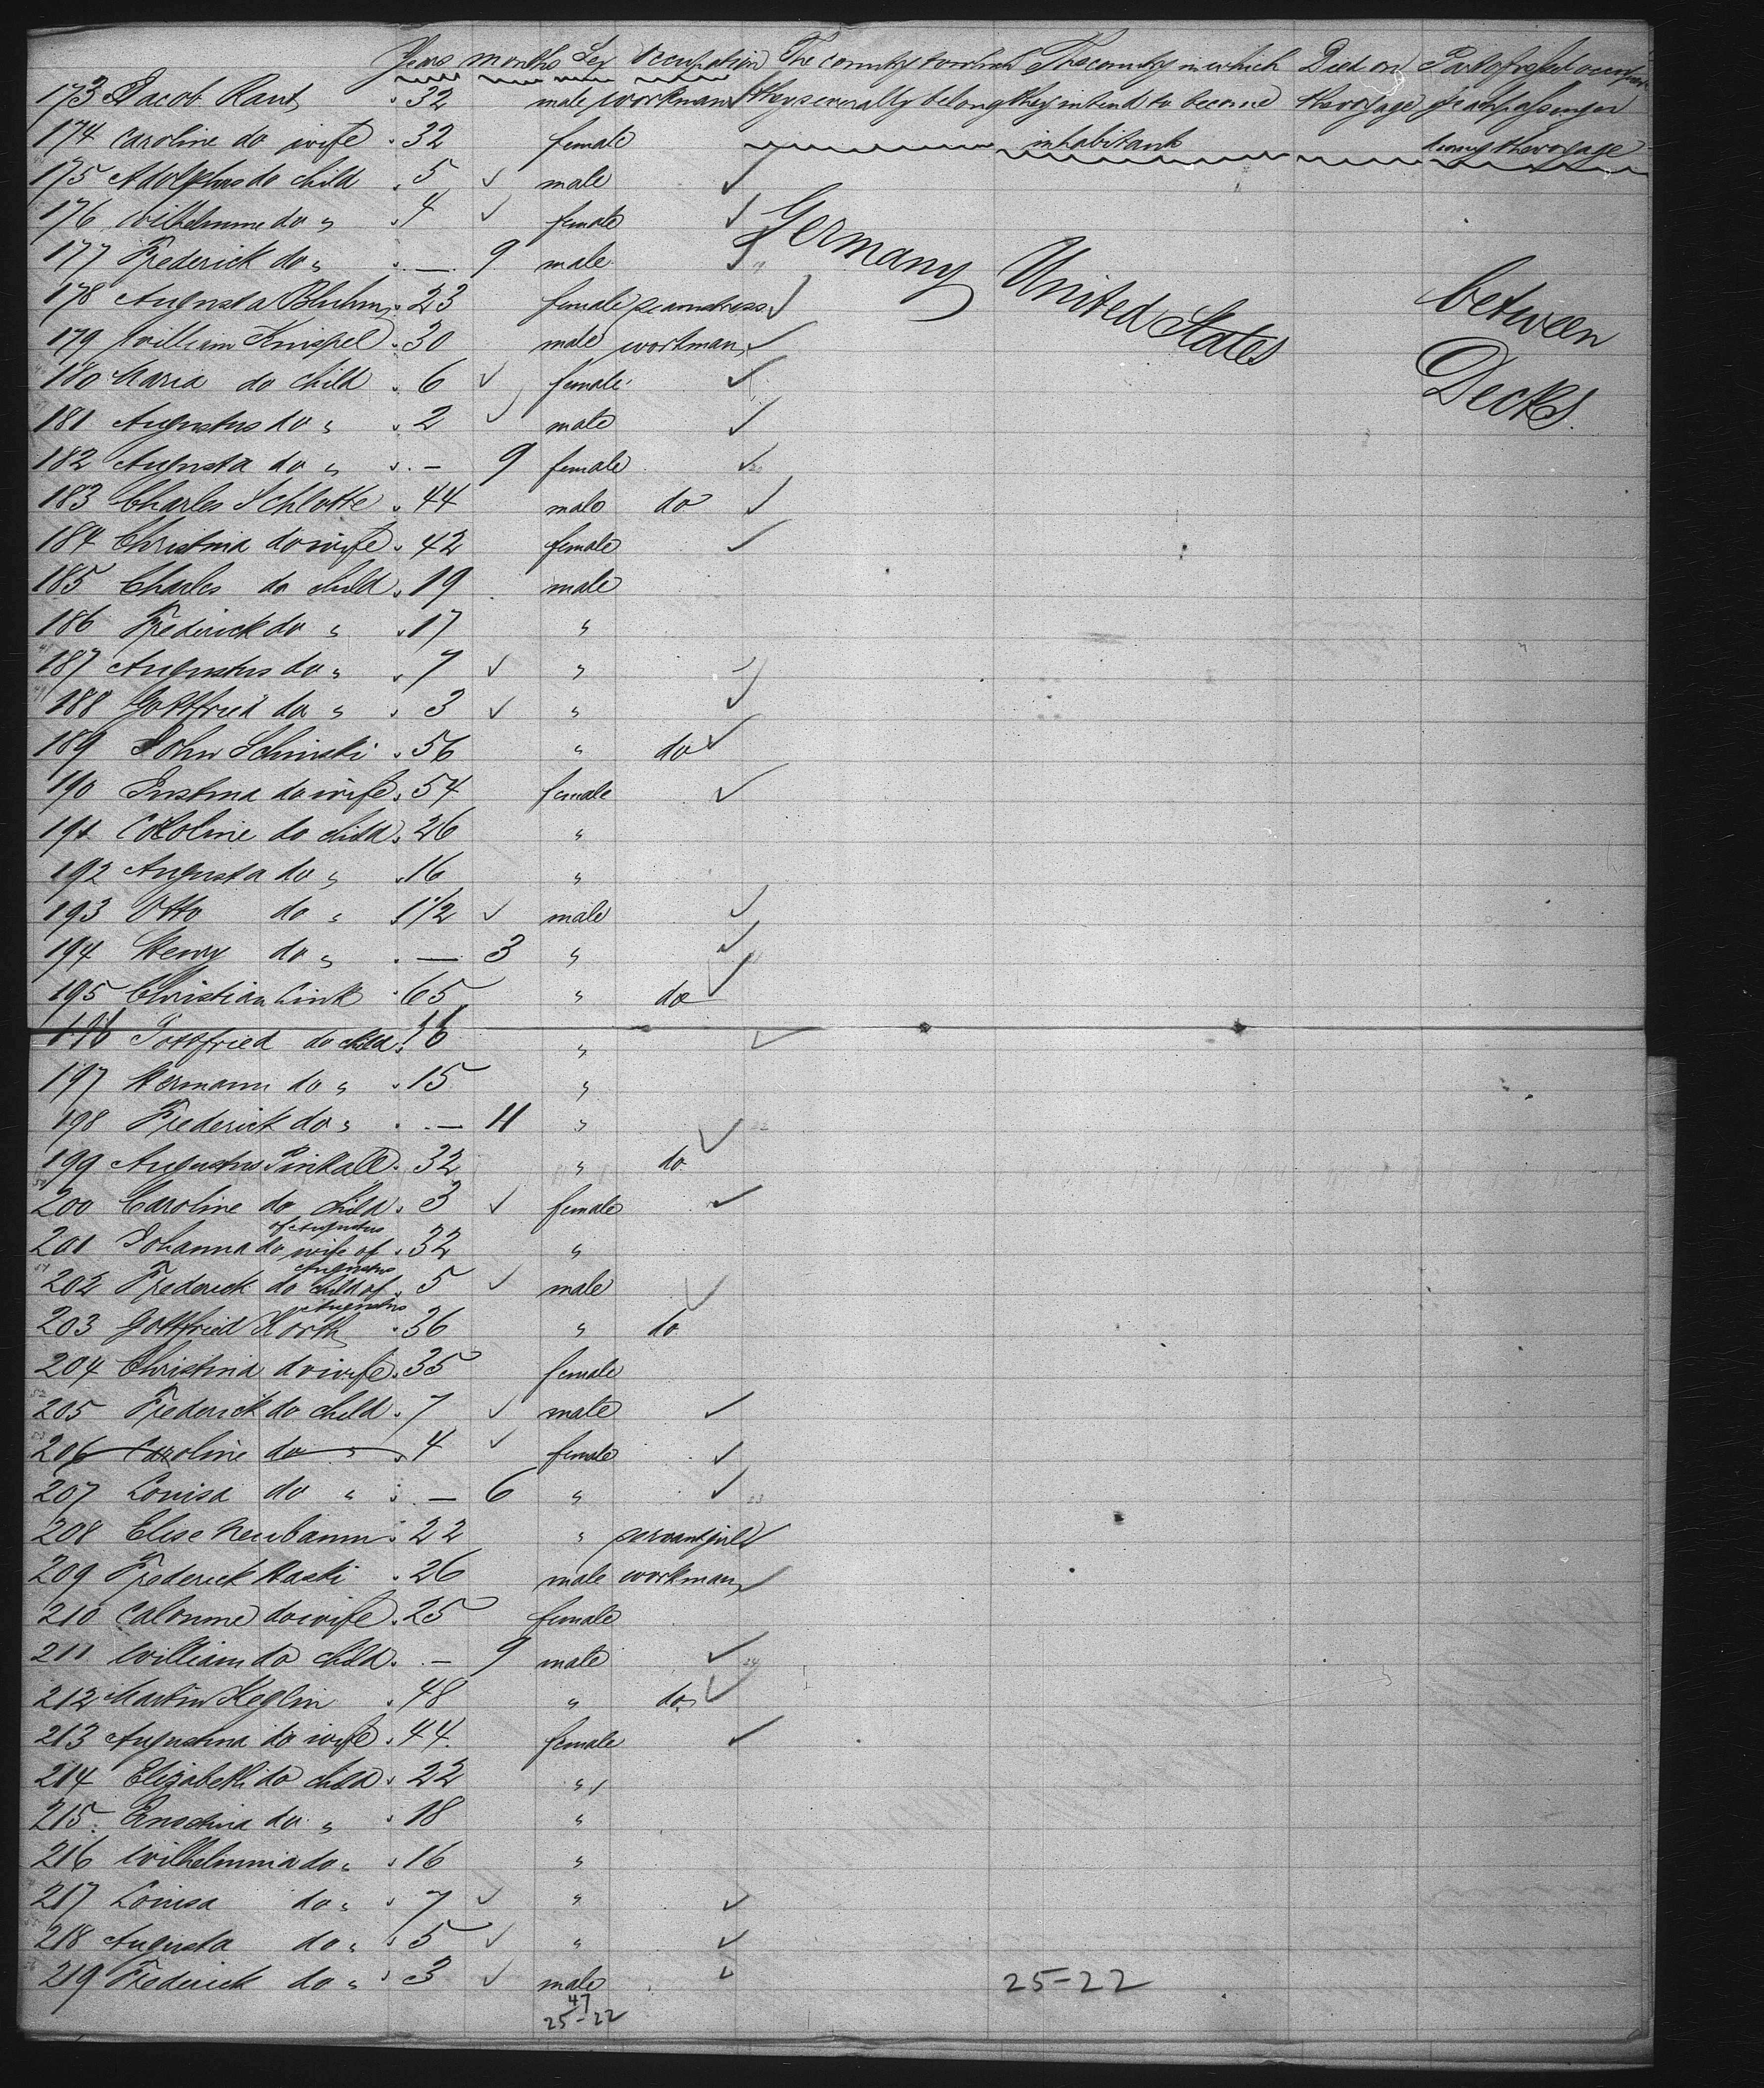 Years months Sex Occupation The country to which The country in which Died on Part of vessel occupied
173 Jacob Rant 32 male workman they severally belong they intend to become the voyage by each passenger
174 Caroline do wife 32 female inhabitants during the voyage
175 Adolphus do child 5 ✓ male ✓
176 Wilhelmine do " 4 ✓ female ✓ Germany
177 Frederick do " — 9 male ✓ United States between
178 Augusta Bluhm 23 female seamstress ✓ Decks.
179 William Knispel 30 male workman ✓
180 Maria do child 6 ✓ female ✓
181 Augustus do " 2 ✓ male ✓
182 Augusta do " — 9 female ✓
183 Charles Schlotte 44 male do ✓
184 Christina do wife 42 female ✓
185 Charles do child 19 male
186 Frederick do " 17 "
187 Augustus do " 7 ✓ " ✓
188 Gottfried do " 3 ✓ " ✓
189 John Schinski 56 " do ✓
190 Justina do wife 54 female ✓
191 Caroline do child 26 "
192 Augusta do " 16 "
193 Otto do " 1 1/2 ✓ male ✓
194 Henry do " — 3 " ✓
195 Christian Link 65 " do ✓
196 Gottfried do child 16 " ✓
197 Hermann do " 15 "
198 Frederick do " — 11 "
199 Augustus Pinkall 32 " do ✓
200 Caroline do child 3 ✓ female ✓
of Augustus
201 Johanna do wife of 32 "
Augustus
202 Frederick do child of 5 ✓ male ✓
Augustus
203 Gottfried Korth 36 " do
204 Christina do wife 35 female
205 Frederick do child 7 ✓ male ✓
206 Caroline do " 4 ✓ female ✓
207 Louisa do " — 6 " ✓
208 Elise Neubaum 22 " servantgirl ✓
209 Frederick Raski 26 male workman ✓
210 do wife 25 female
211 William do child — 9 male ✓
212 Martin Keglin 48 " do ✓
213 Augustina do wife 44 female ✓
214 Elizabeth do child 22 "
215 do " 18 "
216 Wilhelmina do " 16 "
217 Louisa do " 7 ✓ " ✓
218 Augusta do " 5 ✓ " ✓
219 Frederick do " 3 ✓ male ✓ 25-22
47
25-22